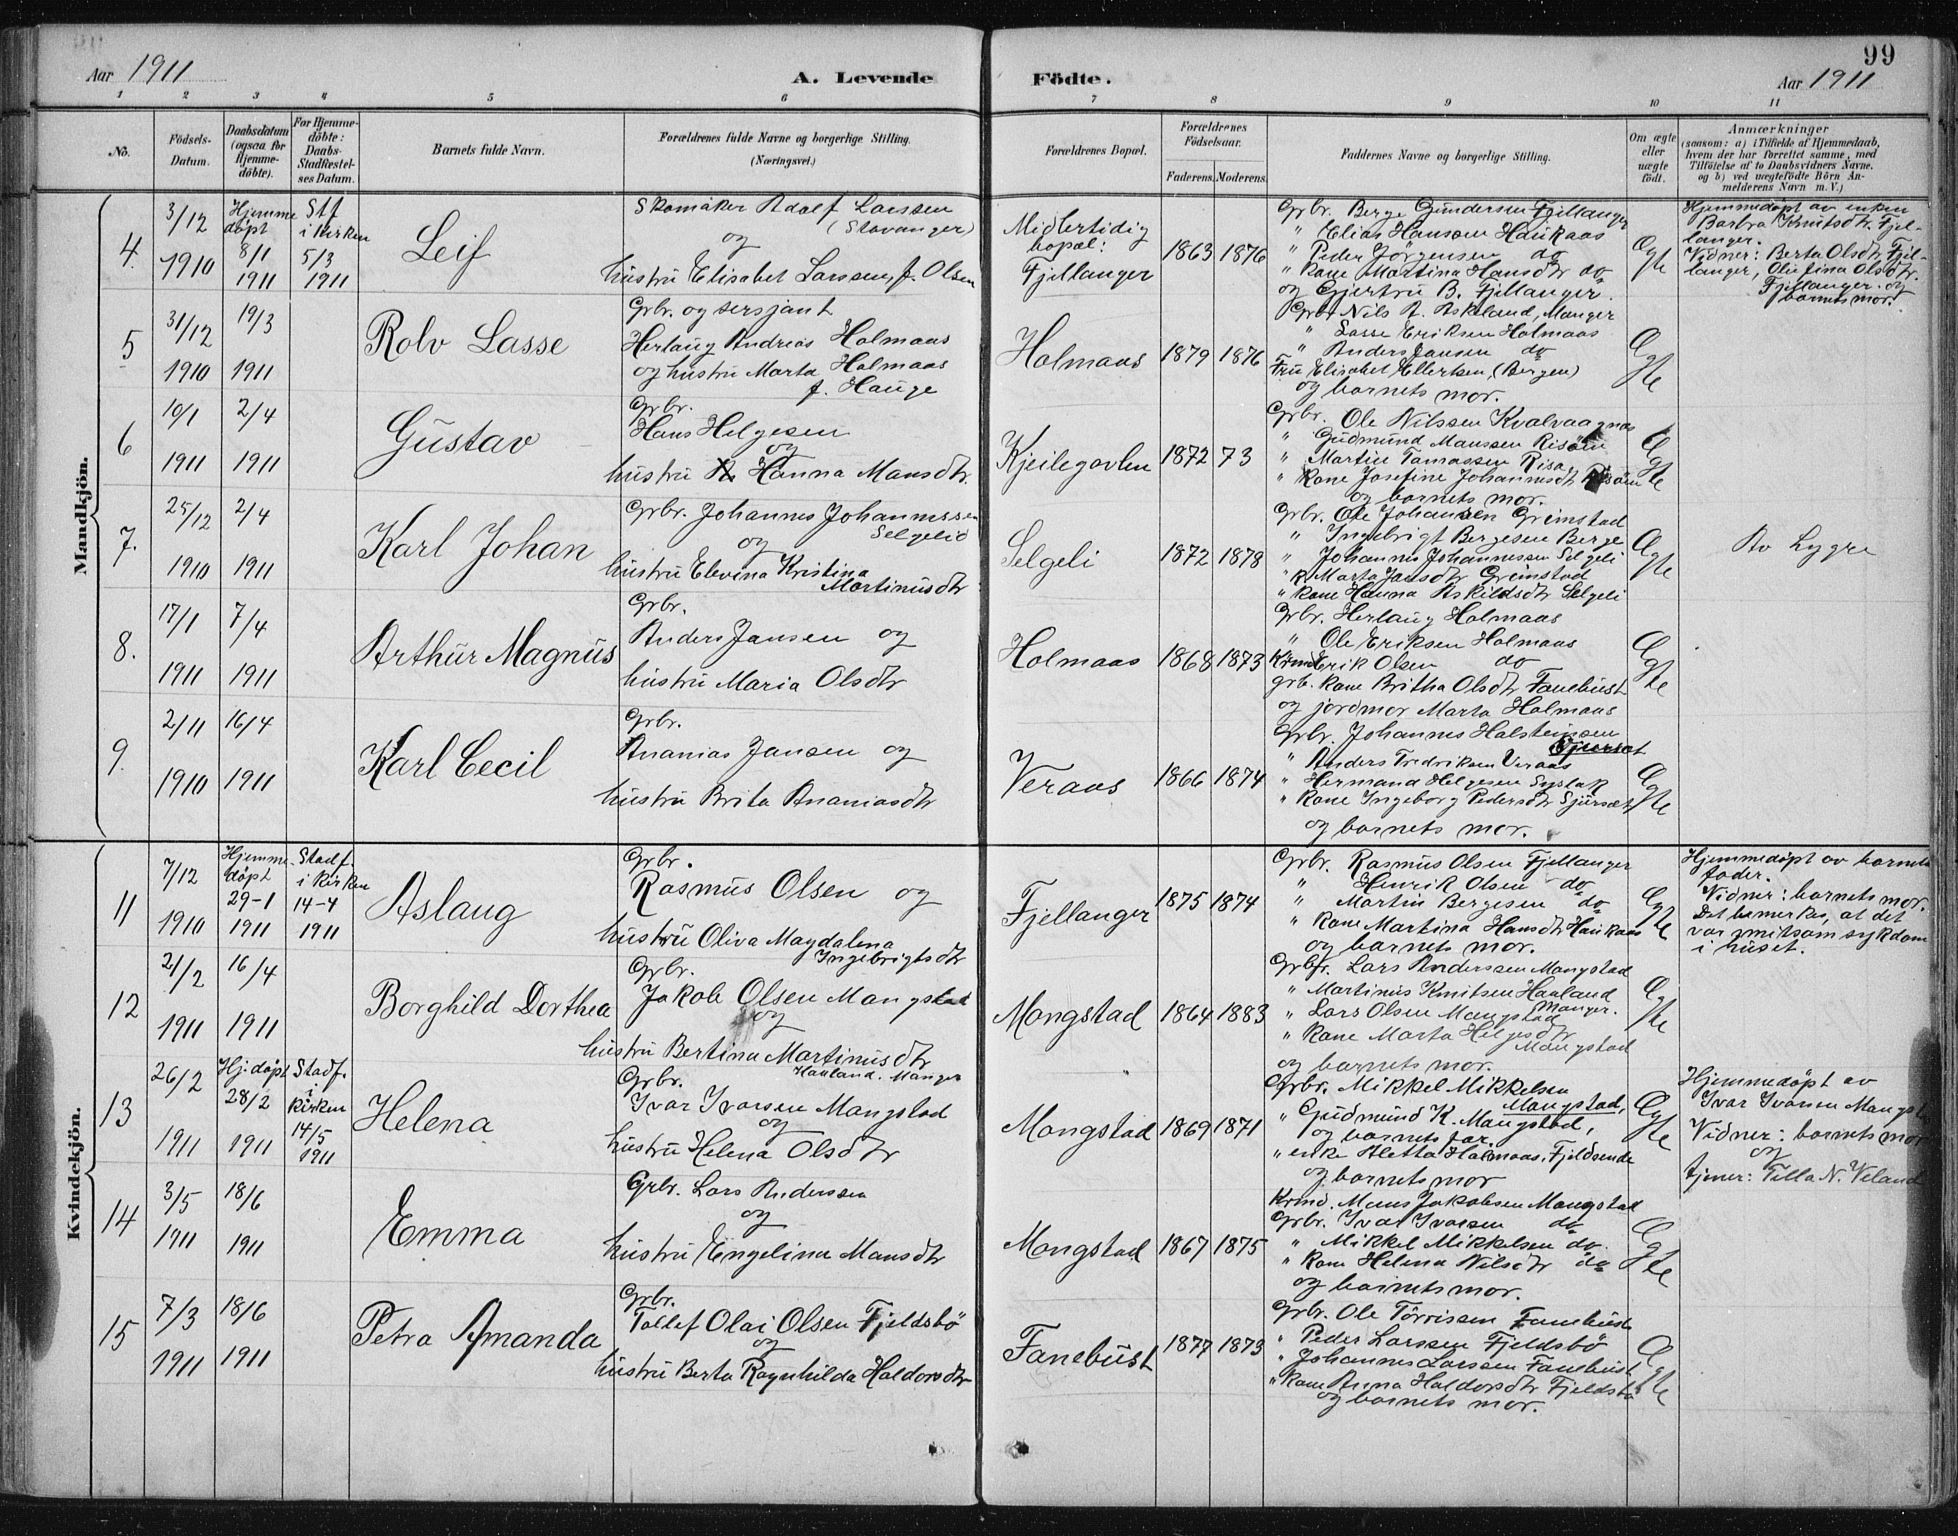 99
Aar 1911
A. Levende
Födte.
Aar 1911
1 2 3 4 5 6 7 8 9 10 11
No.
Födsels-
Datum.
Daabsdatum
(ogsaa for
Hjemme-
döbte).
For Hjemme-
döbte:
Daabs-
Stadfestel-
ses Datum.
Barnets fulde Navn.
Forældrenes fulde Navne og borgerlige Stilling.
(Næringsvei.)
Forældrenes Bopæl.
Forældrenes
Födselsaar.
Faderens. Moderens.
Faddernes Navne og borgerlige Stilling.
Om ægte
eller
uægte
födt.
Anmærkninger
(saasom: a) i Tilfælde af Hjemmedaab,
hvem der har forrettet samme, med
Tilföielse af to Daabsvidners Navne.
og b) ved uægtefödte Börn An-
melderens Navn m. V.)
Mandkjön.
4.
3/12
1910
Hjemme
döpt
8/1
1911
Stf
i kirken
5/3
1911
Leif
Skomaker Adolf Larssen
(Stavanger)
og
hustru Elisabet Larssen, f. Olsen
Midlertidig
bopæl:
Fjellanger
1863 1876
Grbr. Berge Gundersen Fjellanger
" Elias Hansen Haukaas
" Peder Jörgensen do
" kone Martina Hansdtr do
og Gjertru B. Fjellanger.
Ægte
Hjemmedöpt av enken
Barbra Knutsdtr. Fjel-
langer.
Vidner: Berta Olsdtr Fjel-
langer, Olefina Olsdtr.
Fjellanger. og
barnets mor.
5
31/12
1910
19/3
1911
Rolv Lasse
Grbr. og sersjant
Herlaug Andreas Holmaas
og hustru Marta Holmaas
f. Hauge
Holmaas
1879 1876
Grbr Nils A. Askeland, Manger
" Lasse Eriksen Holmaas
" Anders Jansen do
Fru Elisabet Ellertsen, (Bergen)
og barnets mor.
Ægte
6
19/1
1911
2/4
1911
Gustav
Grbr.
Hans Helgesen
og
hustru Hanna Mansdtr.
Kjeilegavlen
1872 73
Grbr. Ole Nilssen Kvalvaagnes
" Gudmund Manssen Risöen
" Martin Tomassen Risa
" kone Josefine Johannesdt Risöen
og barnets mor.
Ægte
7.
25/12
1910
2/4
1911
Karl Johan
Grbr. Johannes Johannessen
Selgelid
og
hustru Elevina Kristina
Martinusdtr
Selgeli
1872 1878
Grbr. Ole Johansen Grimstad
" Ingebrigt Bergesen Berge
" Johannes Johannessen Selgeli
" k. Marta Jansdtr Grimstad
" kone Hanna Askildsdtr Selgeli
Ægte
Av Lygre
8.
17/1
1911
7/4
1911
Arthur Magnus
Grbr.
Anders Jansen og
hustru Maria Olsdtr
Holmaas
1868 1873
Grbr. Herlaug Holmaas
" Ole Eriksen Holmaas
Krmd Erik Olsen do
grb. kone Britha Olsdtr Fanebust
og jordmor Marta Holmaas
Ægte
9.
2/11
1910
16/4
1911
Karl Cecil
Grbr.
Ananias Jansen og
hustru Brita Ananiasdtr
Veraas
1866 1874
Grbr. Johannes Halsteinsen
" Anders Fredriksen Veraas
" Hermand Helgesen Systak
" kone Ingeborg Pedersdtr Sjurset
og barnets mor.
Ægte
Kvindekjön.
11
7/12
1910
Hjemme-
döpt
29-1
1911
Stadf.
i kirken
14-4
1911
Aslaug
Grbr.
Rasmus Olsen og
hustru Oliva Magdalena
Ingebrigtsdtr
Fjellanger
1875 1874
Grbr. Rasmus Olsen Fjellanger
" Henrik Olsen do
" Martin Bergesen do
" kone Martina Hansdtr Haukaas
og barnets mor.
Ægte
Hjemmedöpt av barnets
fader.
Vidner: barnets mor.
Det bemerkes, at det
var smitsom sykdom
i huset.
12
21/2
1911
16/4
1911
Borghild Dorthea
Grbr.
Jakob Olsen Mangstad
og
hustru Bertina Martinusdtr
Haaland. Manger
Mongstad
1864 1883
Grbr. Lars Anderssen Mongstad
" Martinus Knutsen Haaland
Manger.
" Lars Olsen Mangstad
" kone Marta Helgesdtr
Mangstad
og barnets mor.
Ægte
13
26/2
1911
Hj.döpt
28/2
1911
Stadf.
i
kirken
14/5
1911
Helena
Grbr.
Ivar Ivarsen Mangstad
og
hustru Helena Olsdtr
Mongstad
1869 1871
Grbr. Mikkel Mikkelsen
Mangstad,
" Gudmund K. Mangstad,
og barnets far.
" enke Aletta Holmaas, Fjeldsende
og barnets mor
Ægte
Hjemmedöpt av
Ivar Ivarsen Mangst
Vidner: barnets mor
og
tjener: Tilla N. Veland
14
3/5
1911
18/6
1911
Emma
Grbr. Lars Anderssen
og
hustru Engelina Mansdtr
Mongstad
1867 1875
Krmd. Mans Jakobsen Mangstad
Grbr. Ivar Ivarsen do
" Mikkel Mikkelsen do.
" kone Helena Nilsdtr do
og barnets mor.
Ægte
15
7/3
1911
18/6
1911
Petra Amanda
Grbr.
Tollef Olai Olsen Fjeldsbö
og
hustru Berta Ragnhilda Haldorsdtr
Fanebust
1877 1873
Grbr. Ole Törrissen Fanebust
" Peder Larssen Fjeldsbö
" Johannes Larssen Fanebust
" kone Anna Haldorsdtr Fjeldsbö
og barnets mor.
Ægte